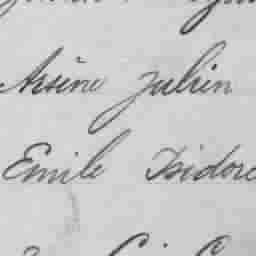 Arsène Julien
Emile Isidore